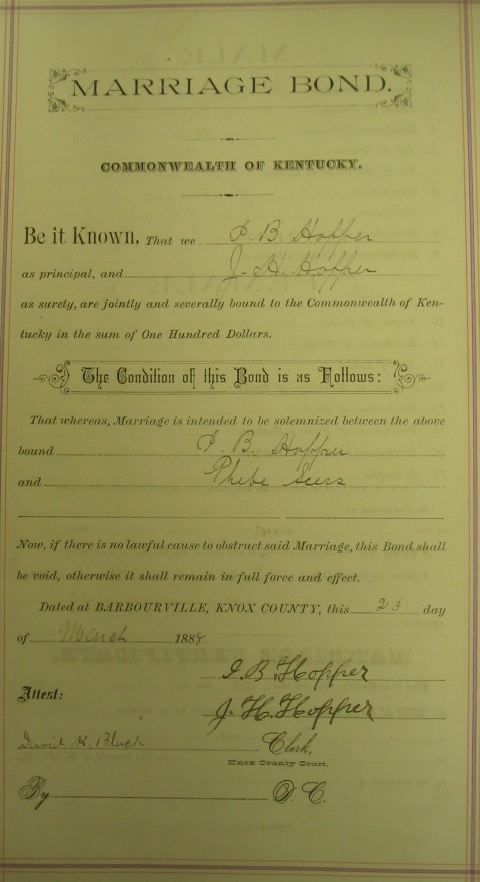 MARRIAGE BOND.
COMMONWEALTH OF KENTUCKY.
Be it Known, That we P. B. Hopper
as principal, and J. H. Hopper
as surety, are jointly and severally bound to the Commonwealth of Ken-
tucky in the sum of One Hundred Dollars.
The Condition of this Bond is as Follows:
That whereas, Marriage is intended to be solemnized between the above
bound P. B. Hopper
and Phebe
Now, if there is no lawful cause to obstruct said Marriage, this Bond shall
be void, otherwise it shall remain in full force and effect.
Dated at BARBOURVILLE, KNOX COUNTY, this 23 day
of March 1888
B. Hopper
Attest: J. H. Hopper
David K. Black Clerk,
Knox County Court.
By D. C.